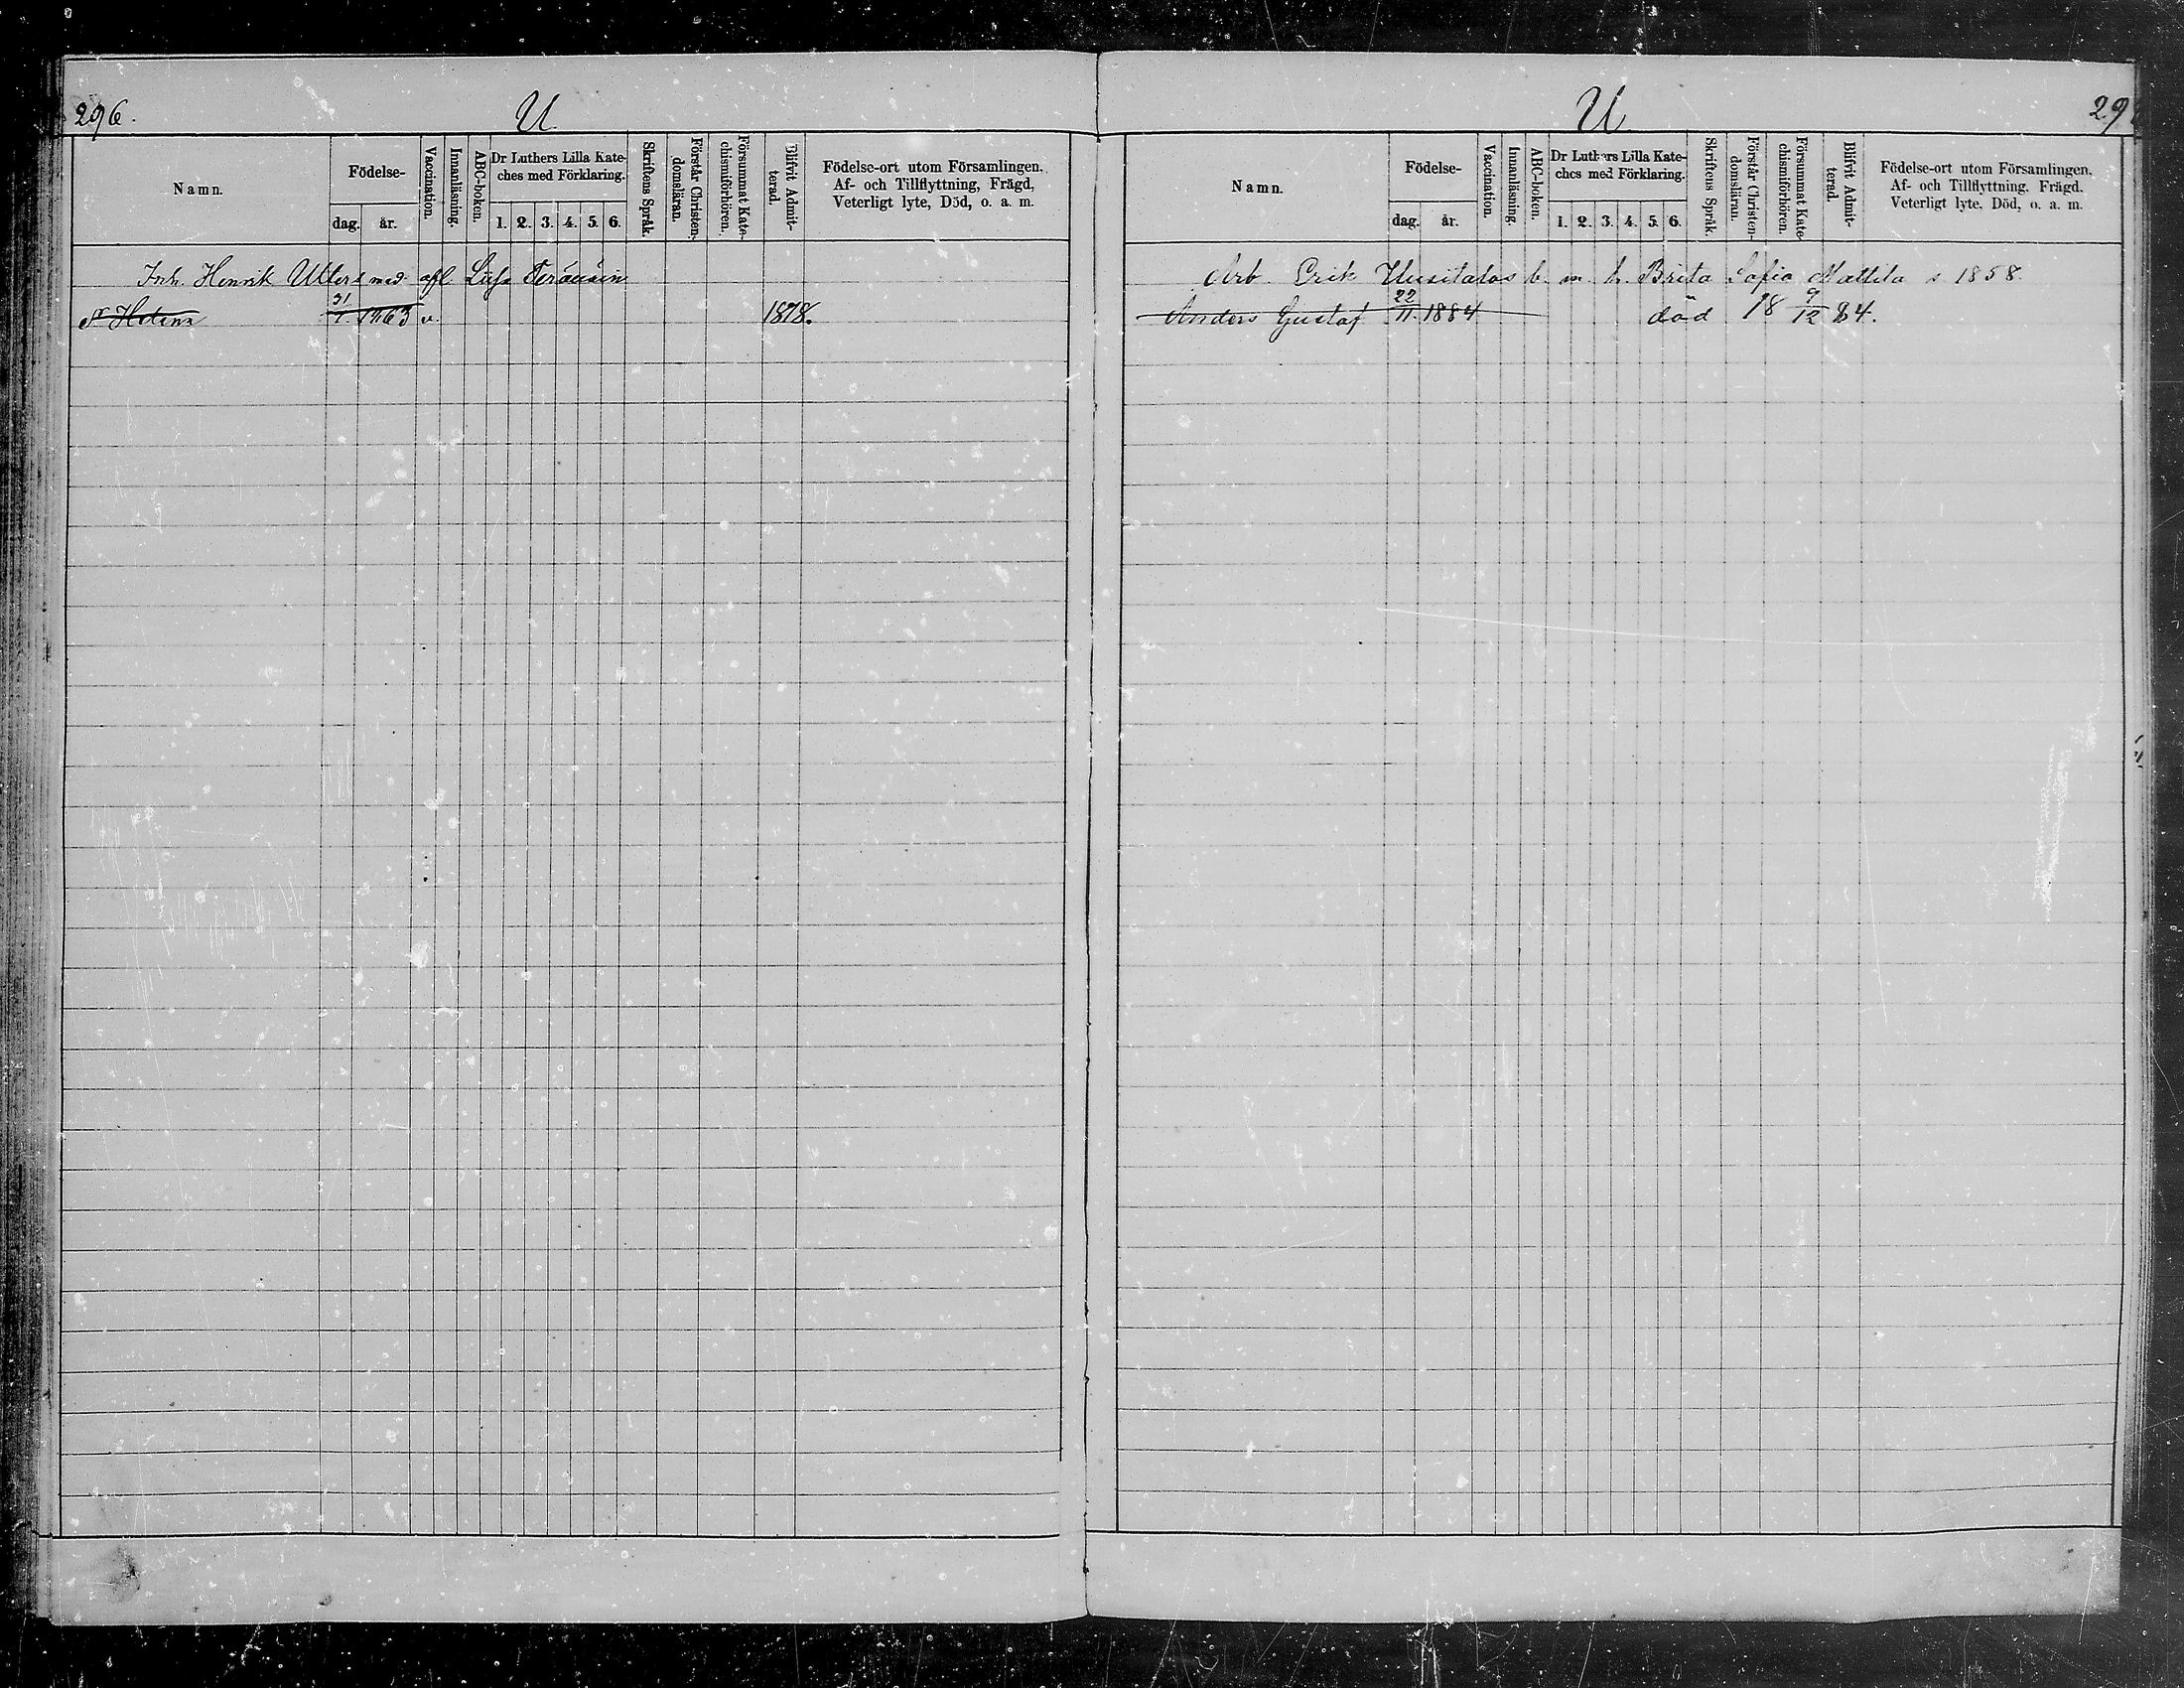 296.
U.
Namn.
Födelse-
dag. år.
Vaccination.
Innanläsning.
ABC-boken.
Dr Luthers Lilla Kate-
ches med Förklaring.
1. 2. 3. 4. 5. 6.
Skriftens Språk.
Förstår Christen-
domsläran.
Försummat Kate-
chismiförhören.
Blifvit Admit-
terad.
Födelse-ort utom Församlingen.
Af- och Tillflyttning, Frägd,
Veterligt lyte, Död, o. a. m.
Inh. Henrik med afl.
Helena 31/1. 1863 v. 1878.
U.
29
Namn.
Födelse-
dag. år.
Vaccination.
Innanläsning.
ABC-boken.
Dr Luthers Lilla Kate-
ches med Förklaring.
1. 2. 3. 4. 5. 6.
Skriftens Språk.
Förstår Christen-
domsläran.
Försummat Kate-
chismiförhören.
Blifvit Admit-
terad.
Födelse-ort utom Församlingen.
Af- och Tillflyttning. Frägd.
Veterligt lyte. Död, o. a. m.
Arb. Erik Uusitalos b. m. h. Brita Sofia Mattila s 1858.
Anders Gustaf 22/11. 1884 död 18 9/12 84.